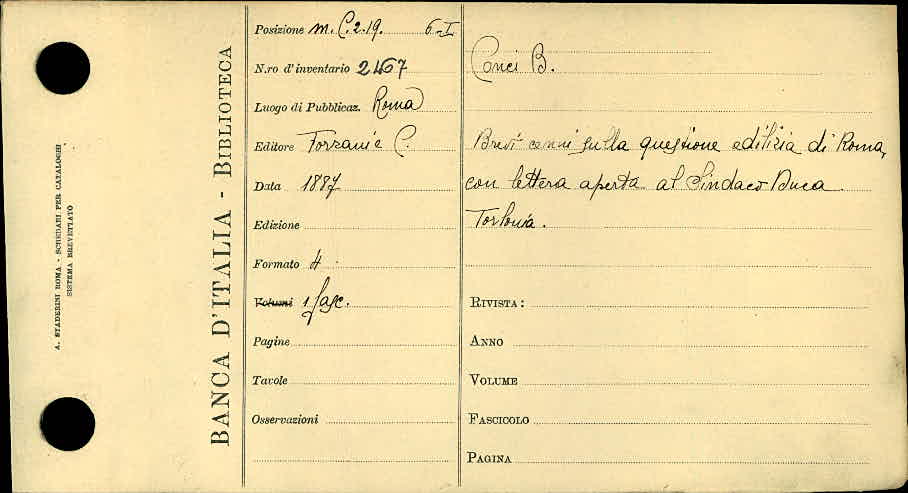 A. STADERINI ROMA - SCHEDARI PER CATALOGHI
SISTEMA BREVETTATO
BANCA D'ITALIA - BIBLIOTECA
Posizione m. C. 2. 19. 6-I
N.ro d'inventario 2467
Luogo di Pubblicaz. Roma
Editore Forzani e C.
Data 1887
Edizione
Formato 4.
Volumi 1 fasc.
Pagine
Tavole
Osservazioni
Conci B.
Brevi cenni sulla questione edilizia di Roma,
con lettera aperta al Sindaco Duca
Torlonia.
RIVISTA:
ANNO
VOLUME
FASCICOLO
PAGINA